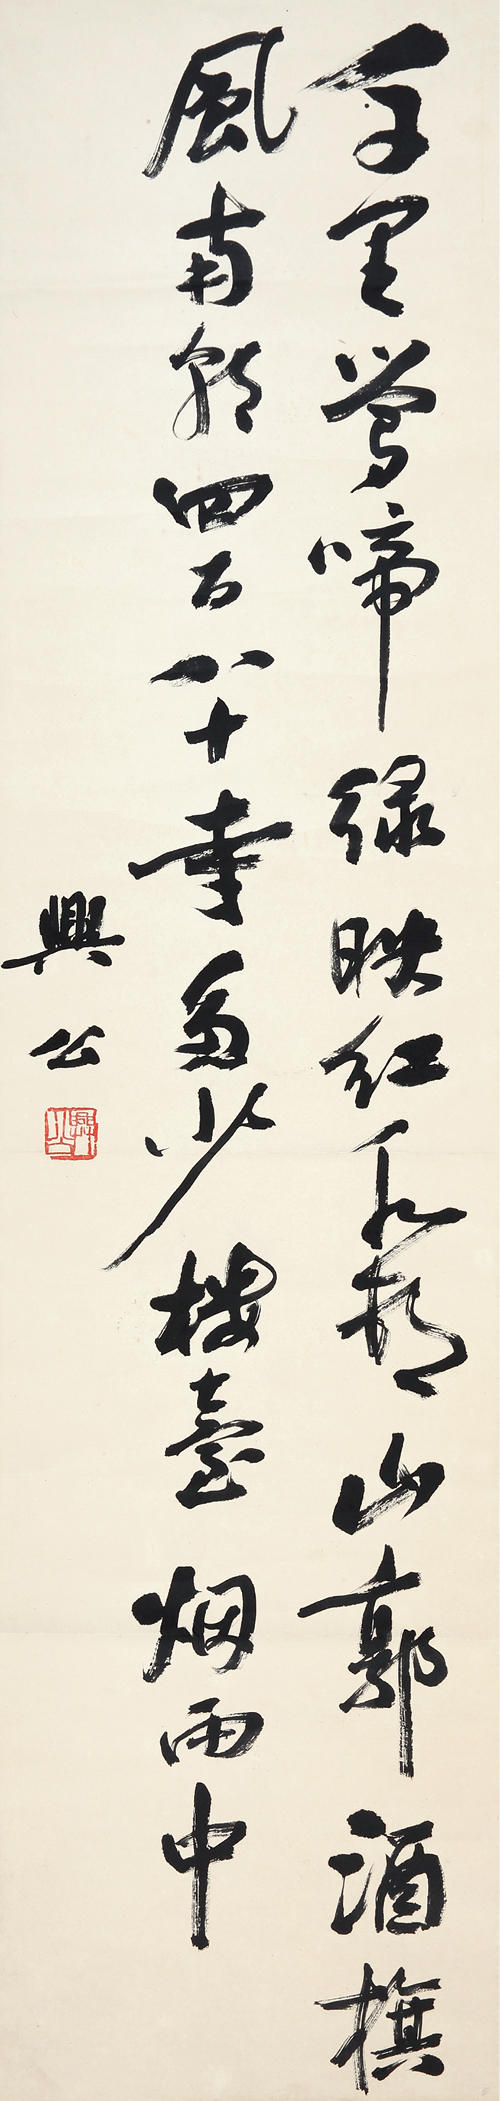 千里鶯啼緑映紅水村山郭酒旗
風南朝四百八十寺多少樓臺烟雨中
興公